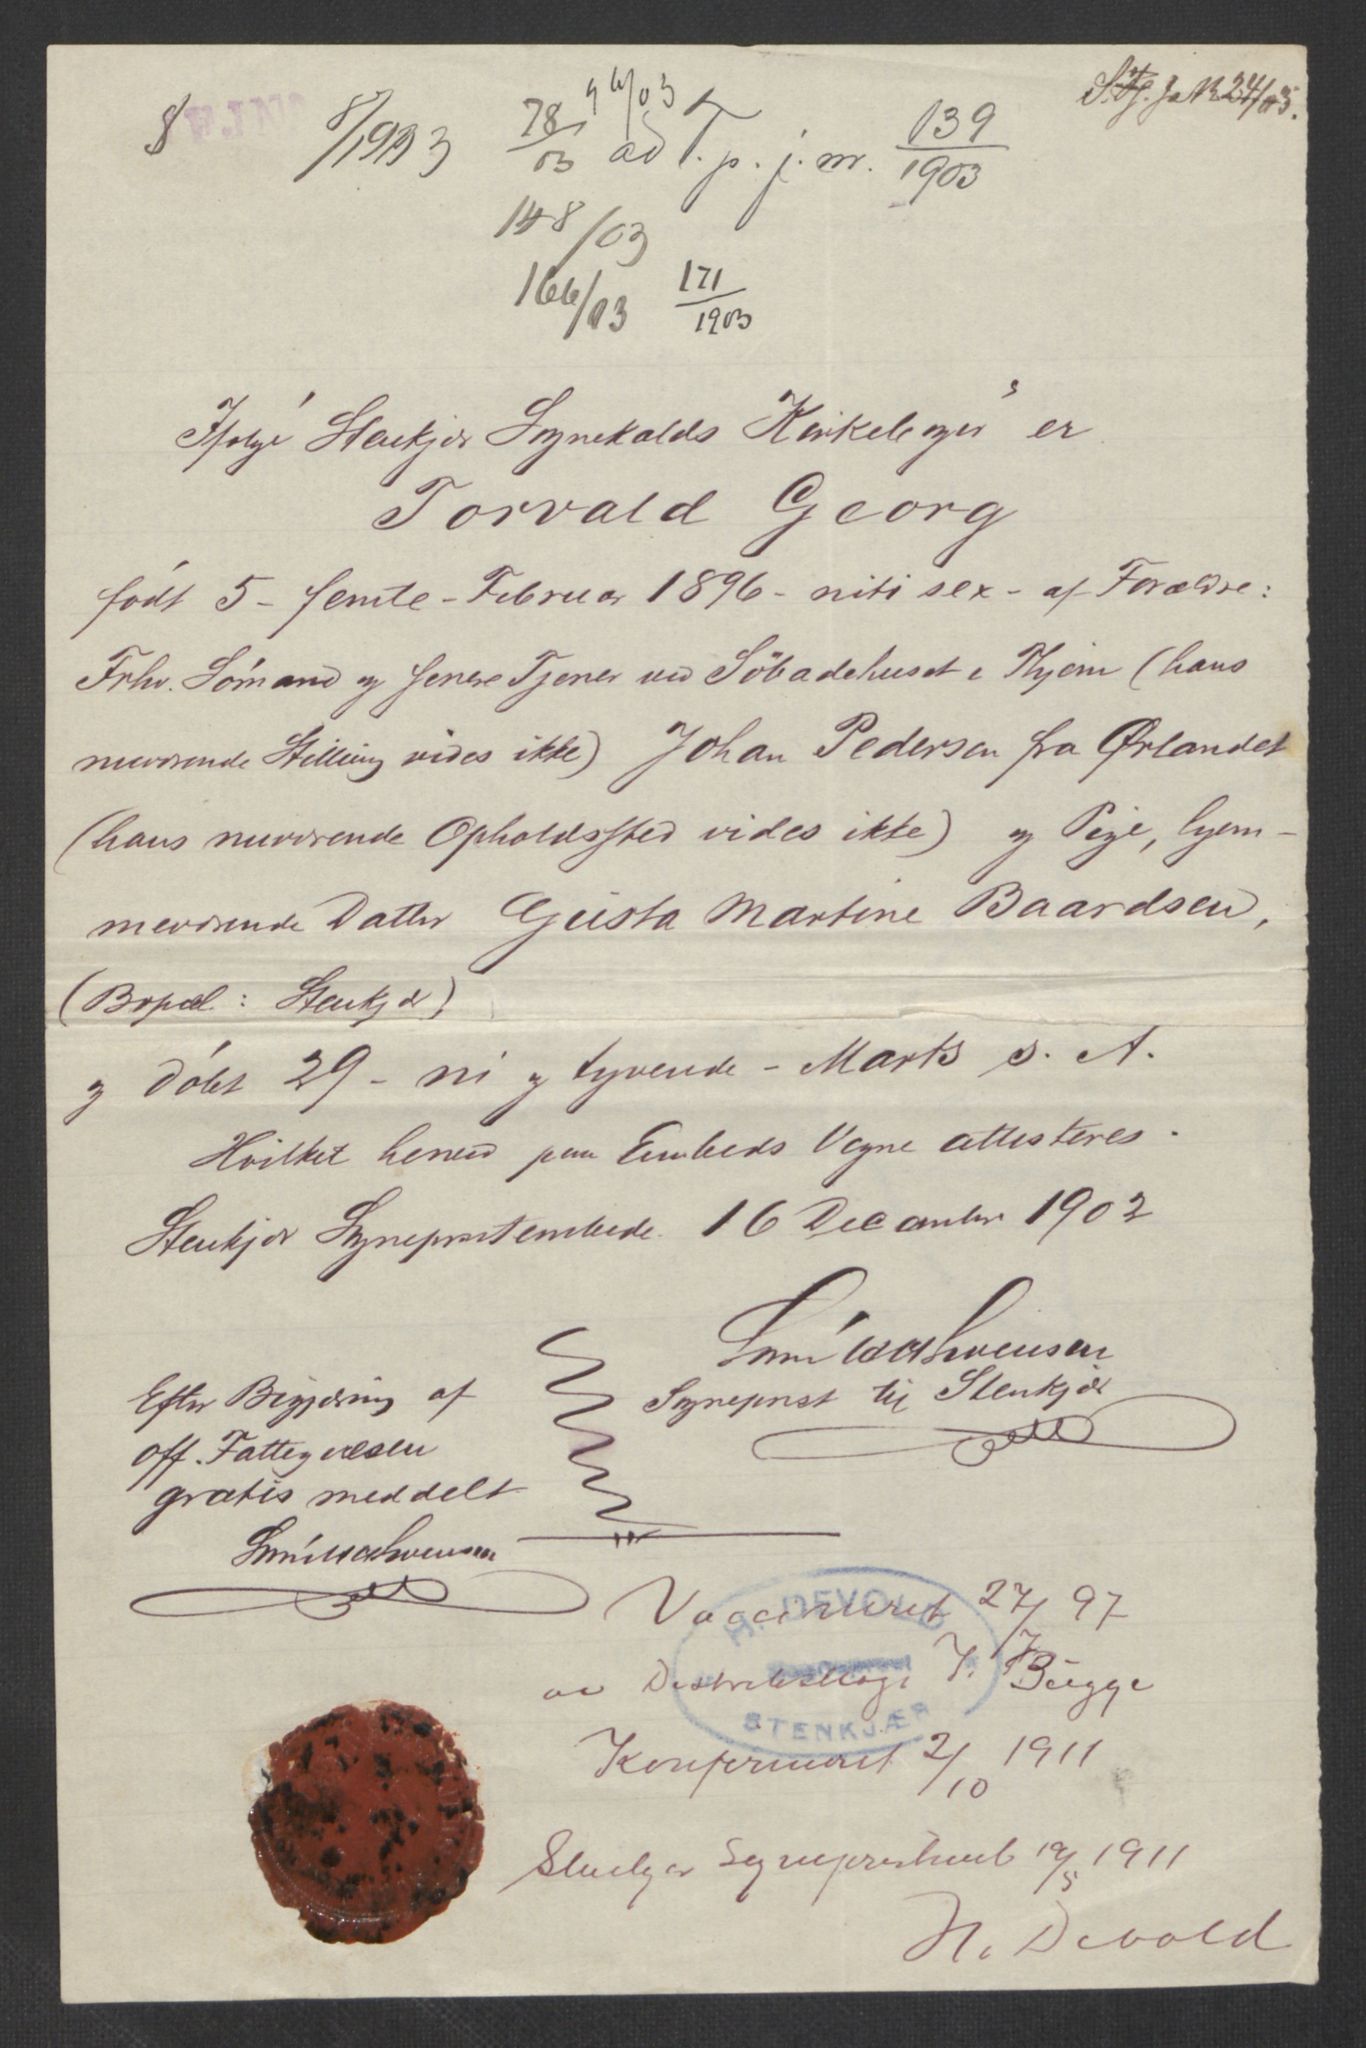 S.fg. J. No 24/03.
8 8/1903 78/03 94/03 ad T. p. j. nr. 139/1903
148/03
166/03 171/1903
Ifølge Stenkjær Sognekalds Kirkebøger er
Torvald Georg
født 5 - femte - Februar 1896 - niti sex - af Forældre:
Frhv. Sømand og senere Tjener ved Söbadehuset i Thjem (hans
nuværende Stilling vides ikke) Johan Pedersen fra Ørlandet
(hans nuværende Opholdssted vides ikke) og Pige, hjem-
meværende Datter Gusta Martine Baardsen,
(Bopæl: Stenkjær)
og döbt 29 - ni og tyvende - Marts s. A.
Hvilket herved paa Embeds Vegne attesteres.
Stenkjær Sogneprestembede 16 December 1902
Sognepræst til Stenkjær
Efter Begjæring af
off. Fattigvæsen
gratis meddelt
Vaccineret 27/7 97
av Distriktslæge J. Bügge
H. DEVOLD
STENKJÆR
Konfirmeret 2/10 1911
Stenkjær Sogneprestemb. 19/5 1911
H. Devold